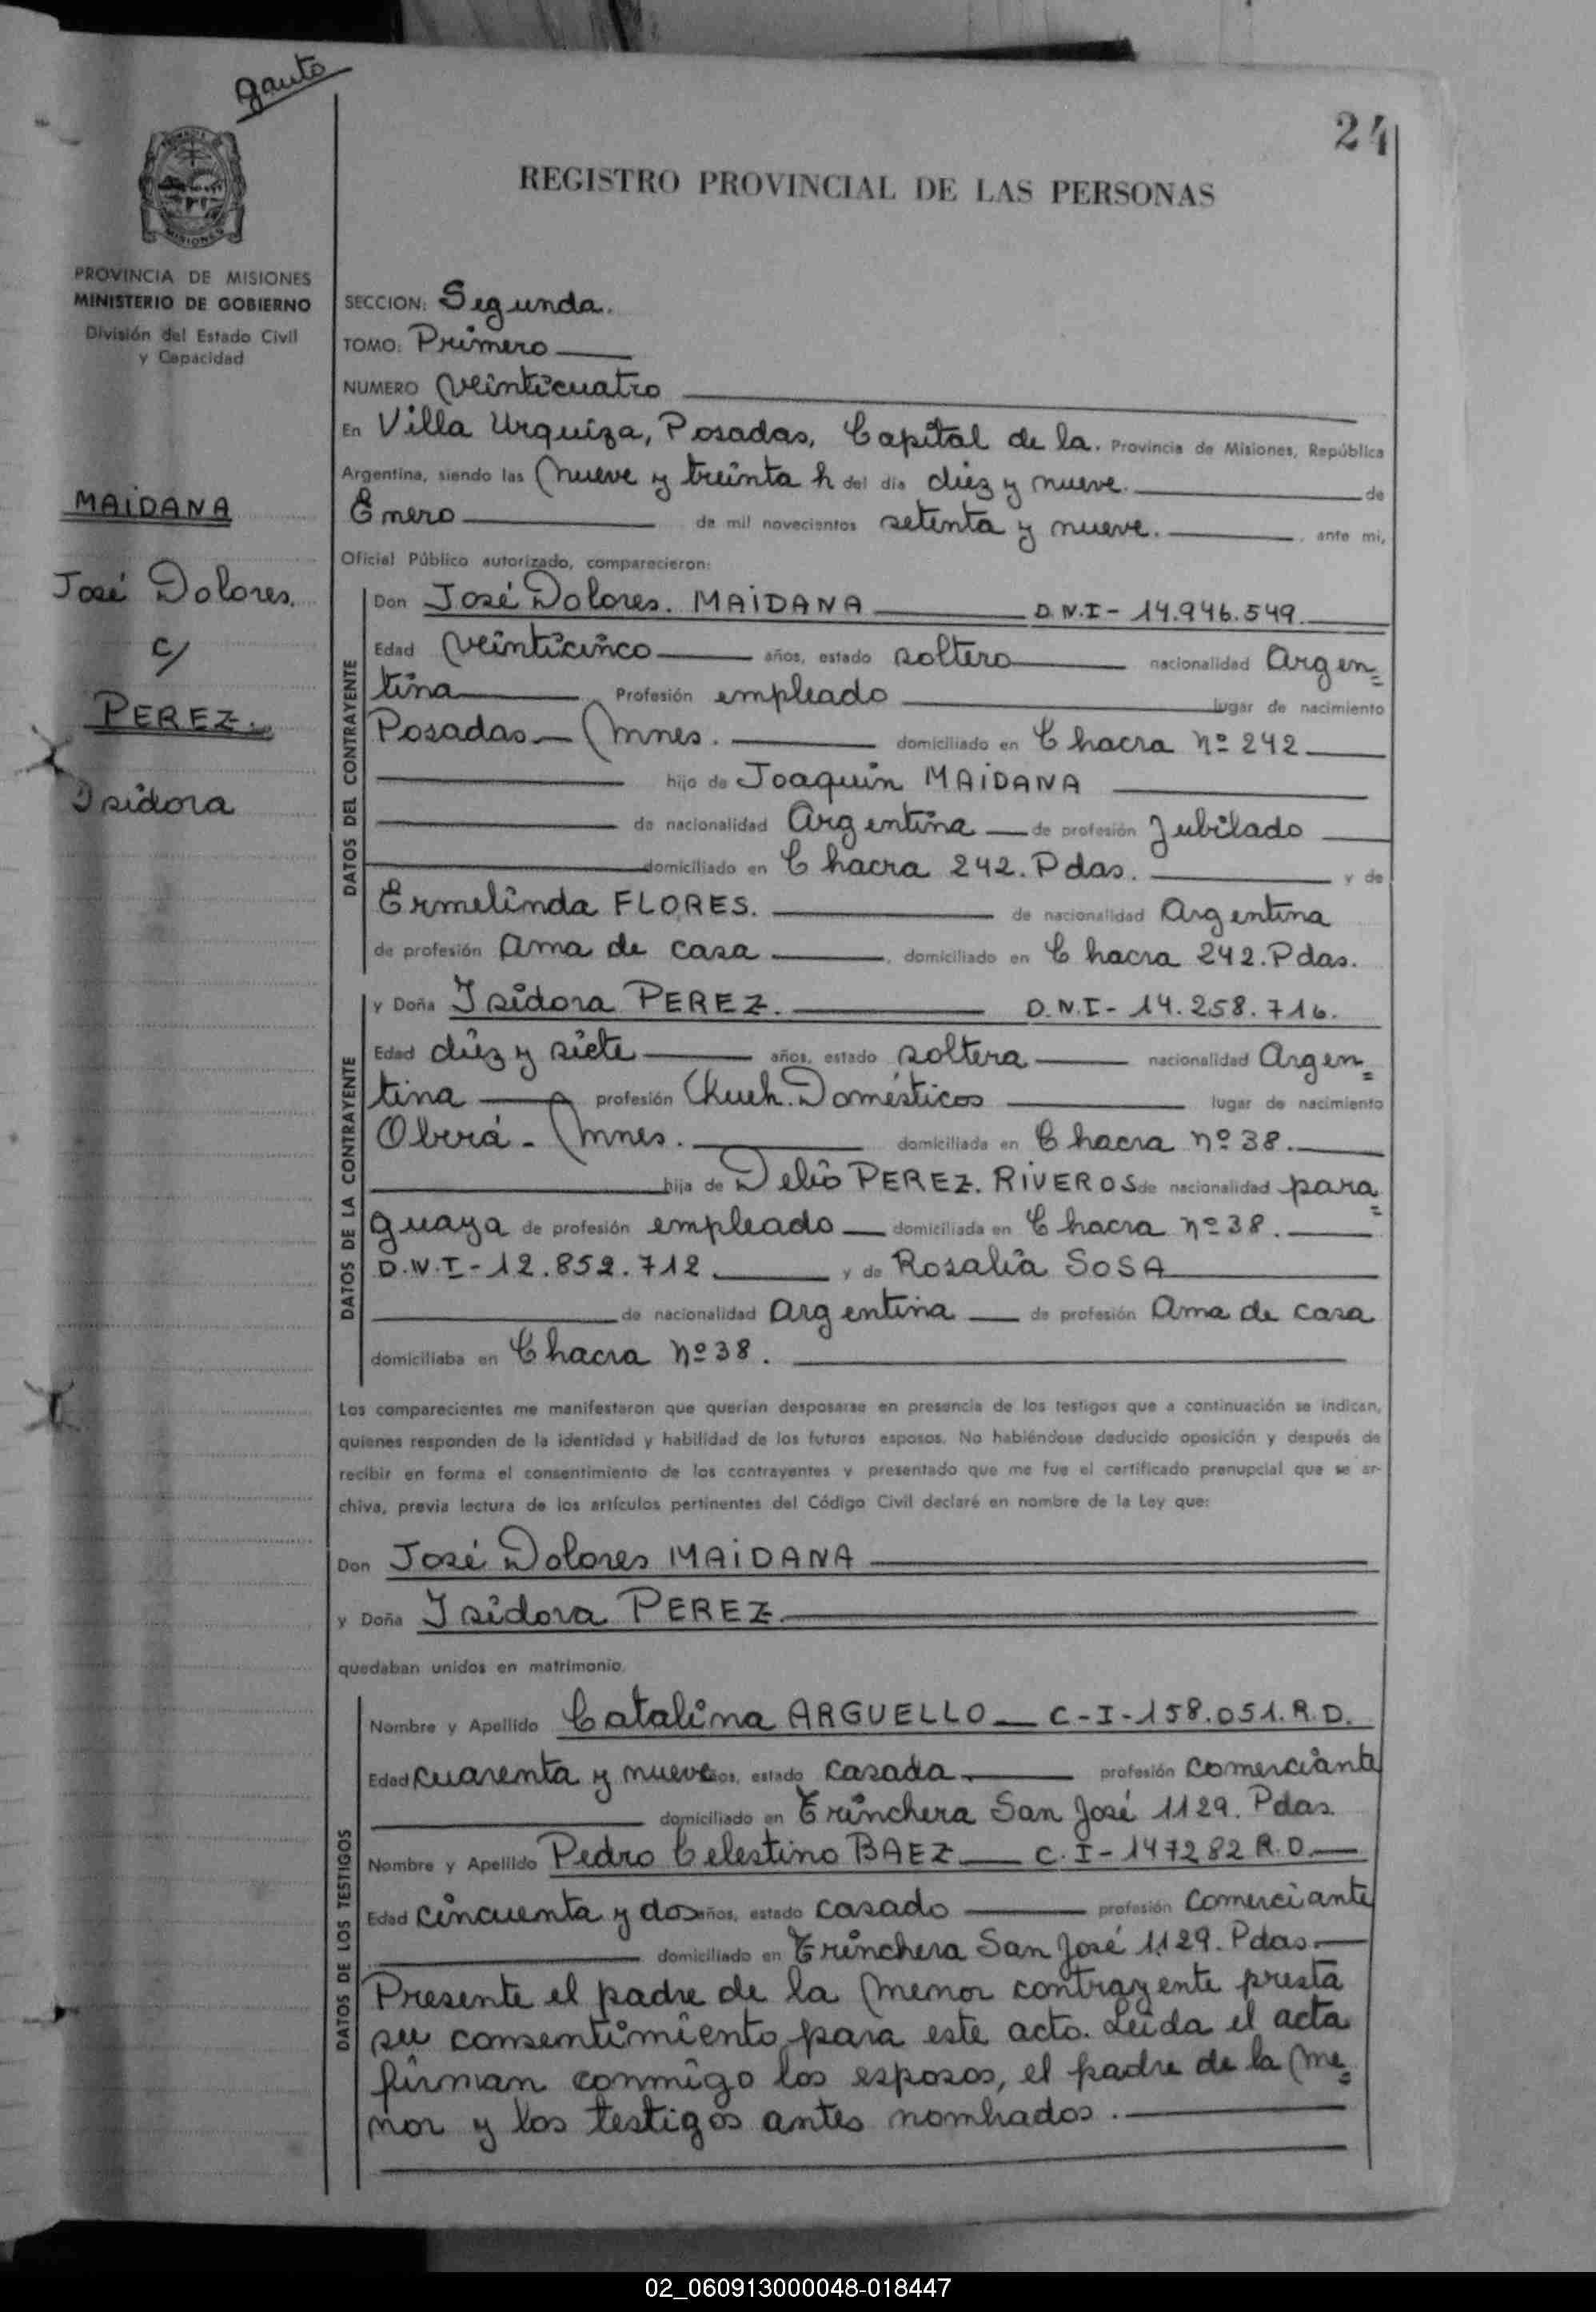 gauto
24
REGISTRO PROVINCIAL DE LAS PERSONAS
MISIONES
PROVINCIA DE MISIONES
MINISTERIO DE GOBIERNO
División del Estado Civil
y Capacidad
MAIDANA
José Dolores.
c/
PEREZ.
Isidora
SECCION: Segunda.
TOMO: Primero
NUMERO veinticuatro
En Villa Urquiza, Posadas, Capital de la. Provincia de Misiones, República
Argentina, siendo las nueve y treinta h del día diez y nueve. de
Enero de mil novecientos setenta y nueve. , ante mi,
Oficial Público autorizado, comparecieron:
DATOS DEL CONTRAYENTE
Don José Dolores. MAIDANA D.N.I - 14.946.549.
Edad veinticinco años, estado soltero nacionalidad Argen=
tina Profesión empleado lugar de nacimiento
Posadas - Mnes. domiciliado en Chacra nº 242
hijo de Joaquin MAIDANA
de nacionalidad Argentina de profesión Jubilado
domiciliado en Chacra 242. Pdas. y de
Ermelinda FLORES. de nacionalidad Argentina
de profesión Ama de casa , domiciliado en Chacra 242. Pdas.
DATOS DE LA CONTRAYENTE
y Doña Isidora PEREZ. D.N.I - 14.258.716.
Edad diez y siete años, estado soltera nacionalidad Argen=
tina profesión Queh. Domésticos lugar de nacimiento
Oberá - Mnes. domiciliada en Chacra nº 38.
hija de Delio PEREZ. RIVEROS de nacionalidad para=
guaya de profesión empleado domiciliada en Chacra nº 38.
D.N.I - 12.852.712 y de Rosalia SOSA
de nacionalidad Argentina de profesión Ama de casa
domiciliaba en Chacra nº 38.
Los comparecientes me manifestaron que querían desposarse en presencia de los testigos que a continuación se indican,
quienes responden de la identidad y habilidad de los futuros esposos. No habiéndose deducido oposición y después de
recibir en forma el consentimiento de los contrayentes y presentado que me fue el certificado prenupcial que se ar-
chiva, previa lectura de los artículos pertinentes del Código Civil declaré en nombre de la Ley que:
Don José Dolores MAIDANA
y Doña Isidora PEREZ.
quedaban unidos en matrimonio.
DATOS DE LOS TESTIGOS
Nombre y Apellido Catalina ARGUELLO C-I-158.051. R.D.
Edad cuarenta y nueve años, estado casada profesión comerciante
domiciliado en Trinchera San José 1129. Pdas
Nombre y Apellido Pedro Celestino BAEZ C.I-147282 R.D.
Edad cincuenta y dos años, estado casado profesión comerciante
domiciliado en Trinchera San José 1129. Pdas.
Presente el padre de la menor contrayente presta
su consentimiento para este acto. Leida el acta
firman conmigo los esposos, el padre de la me=
nor y los testigos antes nombrados.
02_060913000048-018447